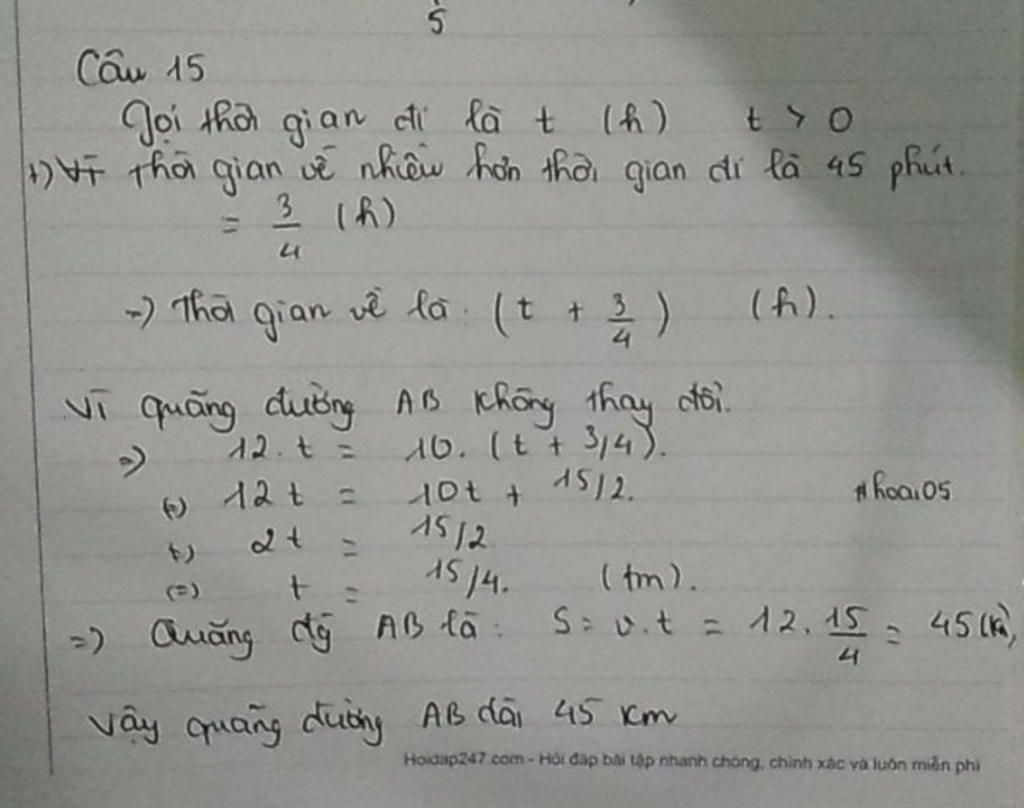 5
Câu 15
Gọi thời gian đi là t (h) t > 0
+) Vì thời gian về nhiều hơn thời gian đi là 45 phút.
= 3/4 (h)
=) Thời gian về là (t + 3/4) (h).
Vì quãng đường AB không thay đổi.
=) 12.t = 10.(t + 3/4).
(=) 12t = 10t + 15/2.
#hoai05
(=) 2t = 15/2
(=) t = 15/4. (tm).
=) Quãng đg AB là: S = v.t = 12.15/4 = 45 (km)
Vậy quãng đường AB dài 45 km
Hoidap247.com - Hỏi đáp bài tập nhanh chóng, chính xác và luôn miễn phí